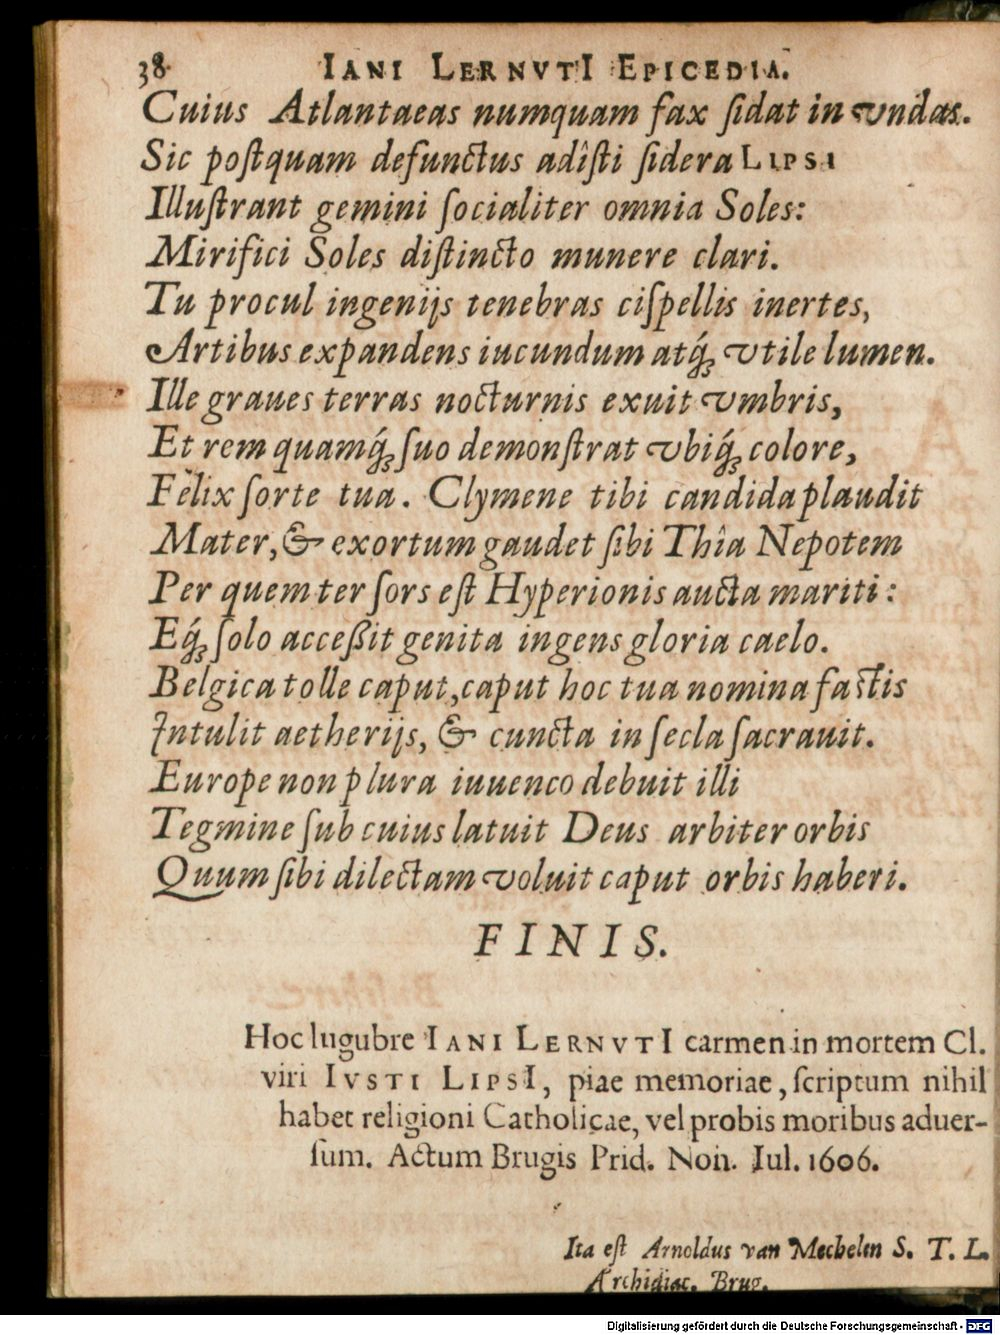 38 IANI LERNVTI EPICEDIA.
Cuius Atlantaeas numquam fax ſidat in vndas.
Sic poſtquam defunctus adîſti ſidera LIPSI
Illuſtrant gemini ſocialiter omnia Soles:
Mirifici Soles diſtincto munere clari.
Tu procul ingenijs tenebras ciſpellis inertes,
Artibus expandens iucundum atq́; vtile lumen.
Ille graues terras nocturnis exuit vmbris,
Et rem quamq́; ſuo demonſtrat vbiq́; colore,
Felix ſorte tua. Clymene tibi candida plaudit
Mater, & exortum gaudet ſibi Thîa Nepotem
Per quem ter ſors eſt Hyperionis aucta mariti:
Eq́; ſolo acceßit genita ingens gloria caelo.
Belgica tolle caput, caput hoc tua nomina faſtis
Intulit aetherijs, & cuncta in ſecla ſacrauit.
Europe non plura iuuenco debuit illi
Tegmine ſub cuius latuit Deus arbiter orbis
Quum ſibi dilectam voluit caput orbis haberi.
FINIS.
Hoc lugubre IANI LERNVTI carmen in mortem Cl.
viri IVSTI LIPSI, piae memoriae, ſcriptum nihil
habet religioni Catholicae, vel probis moribus aduer-
ſum. Actum Brugis Prid. Non. Iul. 1606.
Ita eſt Arnoldus van Mechelen S. T. L.
Archidiac. Brug.
Digitalisierung gefördert durch die Deutsche Forschungsgemeinschaft - DFG